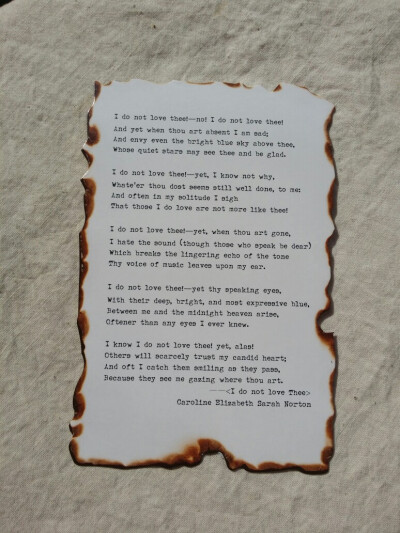 I do not love thee!—no! I do not love thee!
And yet when thou art absent I am sad;
And envy even the bright blue sky above thee,
Whose quiet stars may see thee and be glad.
I do not love thee!—yet, I know not why,
Whate'er thou dost seems still well done, to me:
And often in my solitude I sigh
That those I do love are not more like thee!
I do not love thee!—yet, when thou art gone,
I hate the sound (though those who speak be dear)
Which breaks the lingering echo of the tone
Thy voice of music leaves upon my ear.
I do not love thee!—yet thy speaking eyes,
With their deep, bright, and most expressive blue,
Between me and the midnight heaven arise,
Oftener than any eyes I ever knew.
I know I do not love thee! yet, alas!
Others will scarcely trust my candid heart;
And oft I catch them smiling as they pass,
Because they see me gazing where thou art.
——<I do not love Thee>
Caroline Elizabeth Sarah Norton